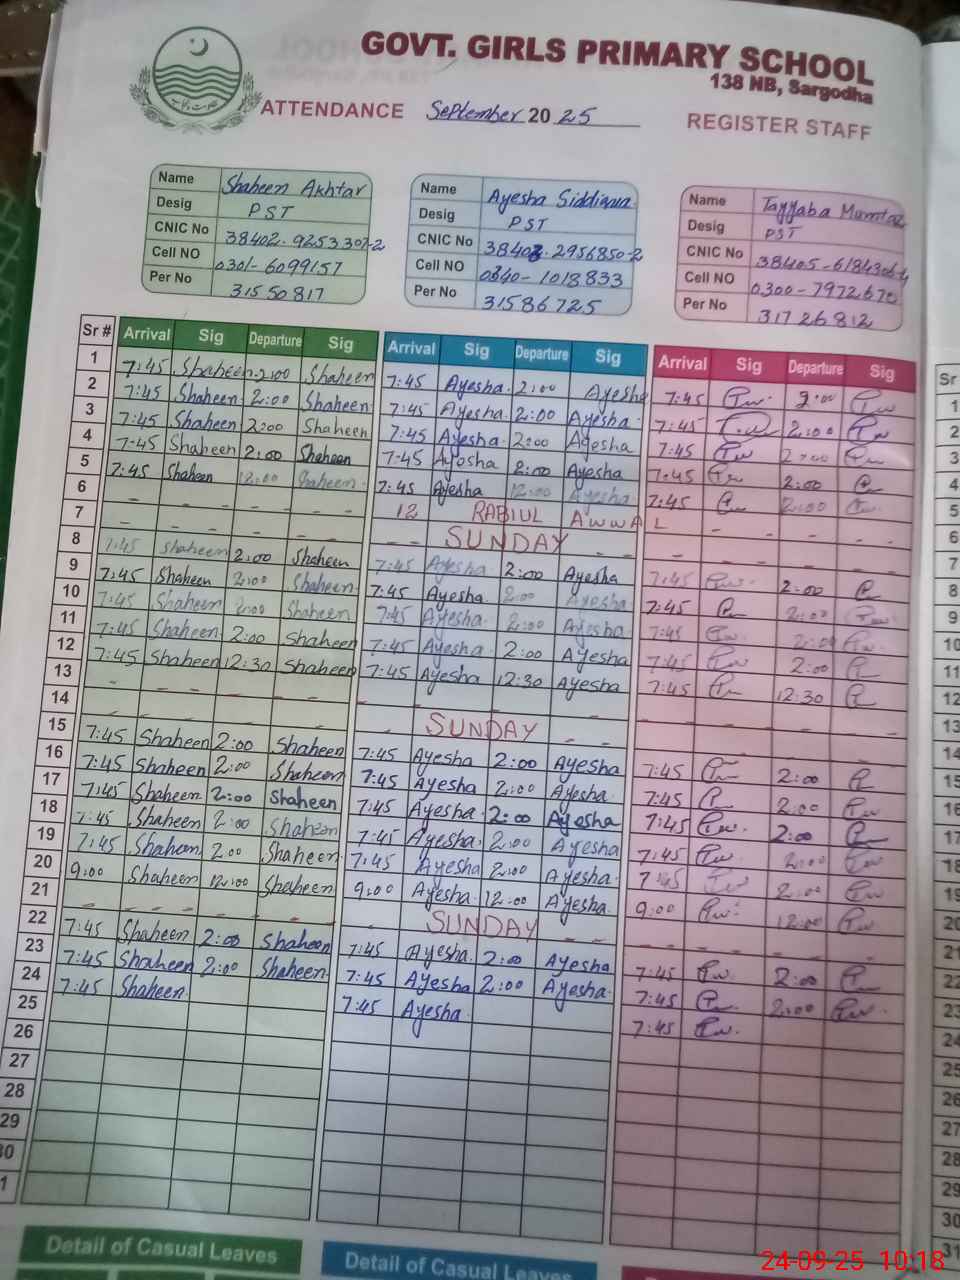 GOVT. GIRLS PRIMARY SCHOOL
138 NB, Sargodha
ATTENDANCE September 2025 REGISTER STAFF
Name Shaheen Akhtar
Desig PST
CNIC No 38402-9253307-2
Cell NO 0301-6099157
Per No 31550817
Name Ayesha Siddiqua
Desig PST
CNIC No 38403-2956850-2
Cell NO 0340-1018833
Per No 31586725
Name Tayyaba Mumtaz
Desig PST
CNIC No
Cell NO 0300-7972670
Per No 31726812
Sr # Arrival Sig Departure Sig Arrival Sig Departure Sig Arrival Sig Departure Sig
1 7:45 Shaheen 2:00 Shaheen 7:45 Ayesha 2:00 Ayesha 7:45 2:00
2 7:45 Shaheen 2:00 Shaheen 7:45 Ayesha 2:00 Ayesha 7:45 2:00
3 7:45 Shaheen 2:00 Shaheen 7:45 Ayesha 2:00 Ayesha 7:45 2:00
4 7:45 Shaheen 2:00 Shaheen 7:45 Ayesha 2:00 Ayesha 7:45 2:00
5 7:45 Shaheen 12:00 Shaheen 7:45 Ayesha 12:00 Ayesha 7:45 2:00
6 - - - - - 12 RABIUL AWWAL - -
7 - - - - - - SUNDAY - - - - - -
8 7:45 Shaheen 2:00 Shaheen 7:45 Ayesha 2:00 Ayesha 7:45 2:00
9 7:45 Shaheen 2:00 Shaheen 7:45 Ayesha 2:00 Ayesha 7:45 2:00
10 7:45 Shaheen 2:00 Shaheen 7:45 Ayesha 2:00 Ayesha 7:45 2:00
11 7:45 Shaheen 2:00 Shaheen 7:45 Ayesha 2:00 Ayesha 7:45 2:00
12 7:45 Shaheen 12:30 Shaheen 7:45 Ayesha 12:30 Ayesha 7:45 12:30
13 - - - - - - - - - - -
14 - - - - - SUNDAY - - - - - -
15 7:45 Shaheen 2:00 Shaheen 7:45 Ayesha 2:00 Ayesha 7:45 2:00
16 7:45 Shaheen 2:00 Shaheen 7:45 Ayesha 2:00 Ayesha 7:45 2:00
17 7:45 Shaheen 2:00 Shaheen 7:45 Ayesha 2:00 Ayesha 7:45 2:00
18 7:45 Shaheen 2:00 Shaheen 7:45 Ayesha 2:00 Ayesha 7:45 2:00
19 7:45 Shaheen 2:00 Shaheen 7:45 Ayesha 2:00 Ayesha 7:45 2:00
20 9:00 Shaheen 12:00 Shaheen 9:00 Ayesha 12:00 Ayesha 9:00 12:00
21 - - - - - - SUNDAY - - - - - -
22 7:45 Shaheen 2:00 Shaheen 7:45 Ayesha 2:00 Ayesha 7:45 2:00
23 7:45 Shaheen 2:00 Shaheen 7:45 Ayesha 2:00 Ayesha 7:45 2:00
24 7:45 Shaheen 7:45 Ayesha 7:45
25
26
27
28
29
30
1
Detail of Casual Leaves Detail of Casual Leaves
Sr
1
2
3
4
5
6
7
8
9
10
11
12
13
14
15
16
17
18
19
20
21
22
23
24
25
26
27
28
29
30
31
24-09-25 10:18